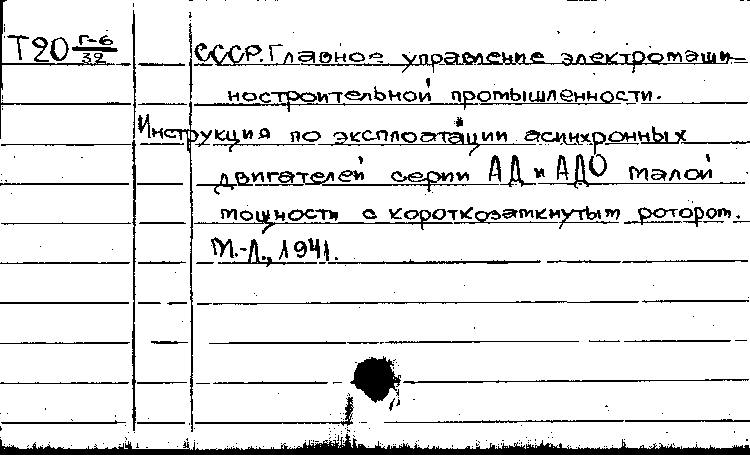 Т20 Г-6/32 СССР. Главное управление электромаши-
ностроительной промышленности.
Инструкция по эксплоатации асинхронных
двигателей серии АД и АДО малой
мощности с короткозамкнутым ротором.
М.-Л., 1941.